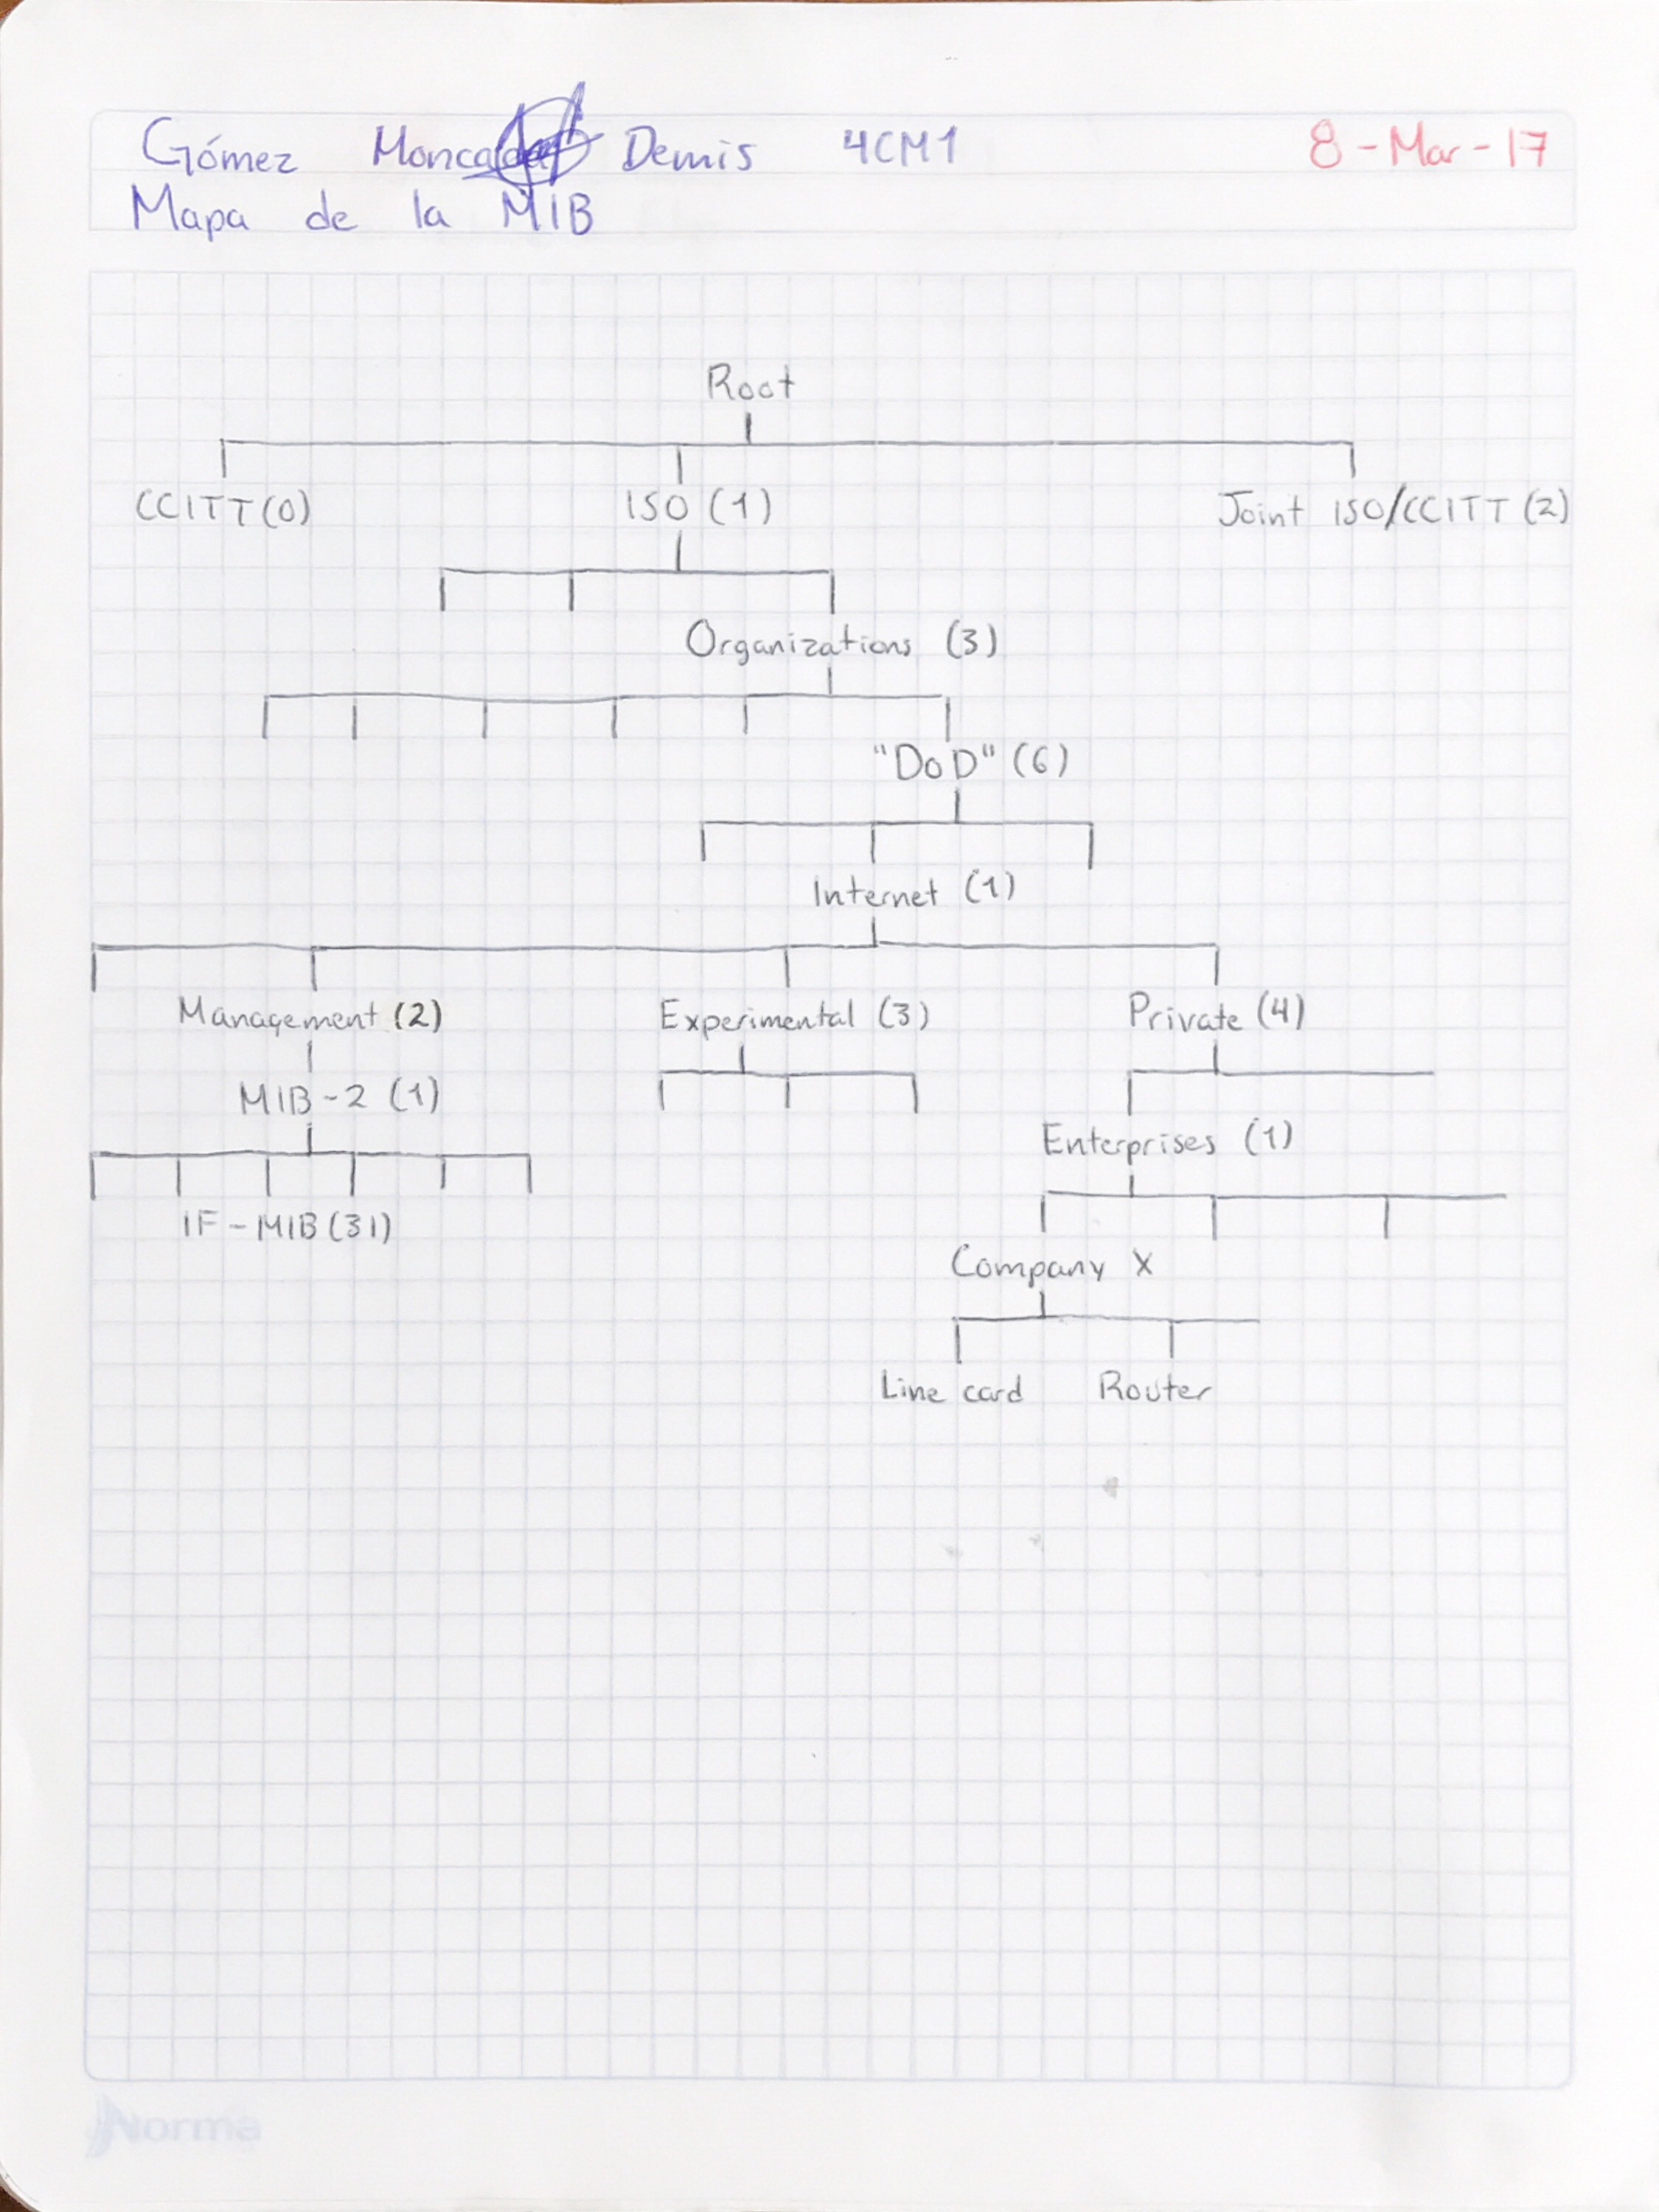 Gómez Moncada Demis 4CM1 8-Mar-17
Mapa de la MIB
Root
CCITT(0) ISO (1) Joint ISO/CCITT (2)
Organizations (3)
"DoD" (6)
Internet (1)
Management (2) Experimental (3) Private (4)
MIB-2 (1)
Enterprises (1)
IF-MIB(31)
Company X
Line card Router
Norma